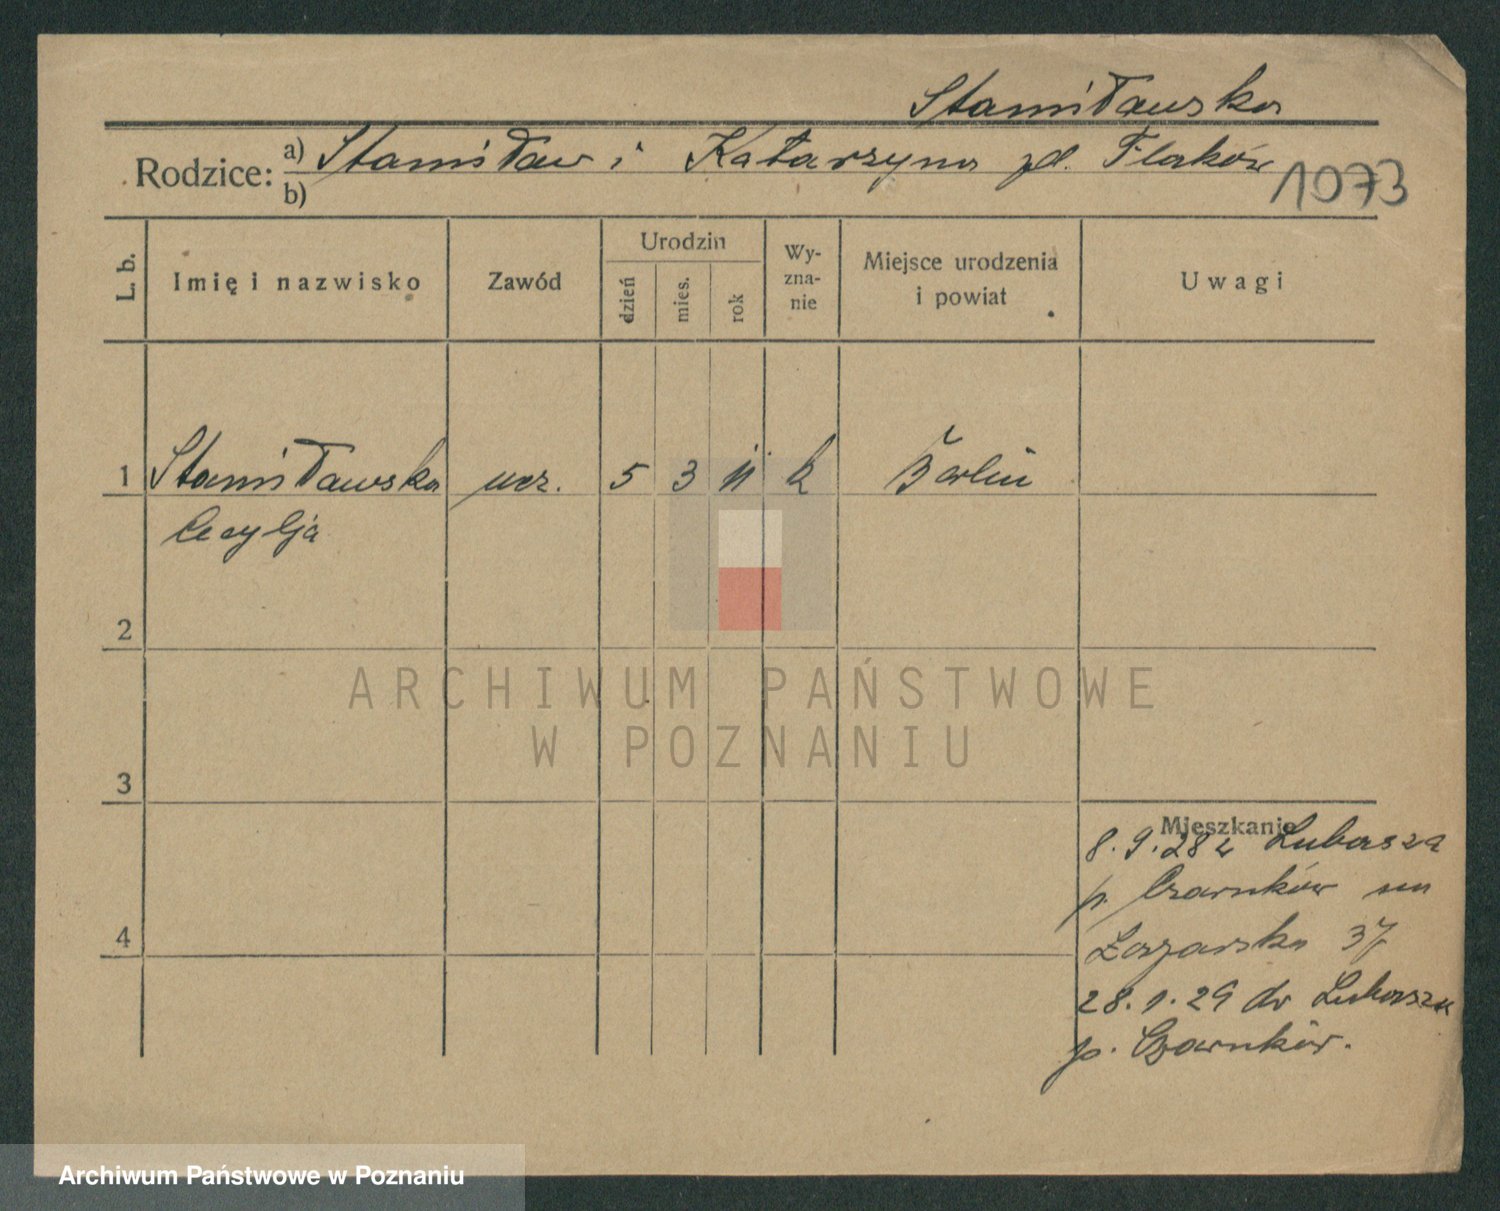 Stanisławska
Rodzice: a) Stanisław i Katarzyna zd. Flaków
b)
1073
L. b.
Imię i nazwisko
Zawód
Urodzin
dzień
mies.
rok
Wy-
zna-
nie
Miejsce urodzenia
i powiat
Uwagi
1 Stanisławska ucz. 5 3 11 k Berlin
Cecylja
2
3
4
ARCHIWUM PAŃSTWOWE
W POZNANIU
Mieszkanie
8.9.28 z Lubasza
p. Czarnków
37
28.1.29 do Lubasza
p. Czarnków.
Archiwum Państwowe w Poznaniu